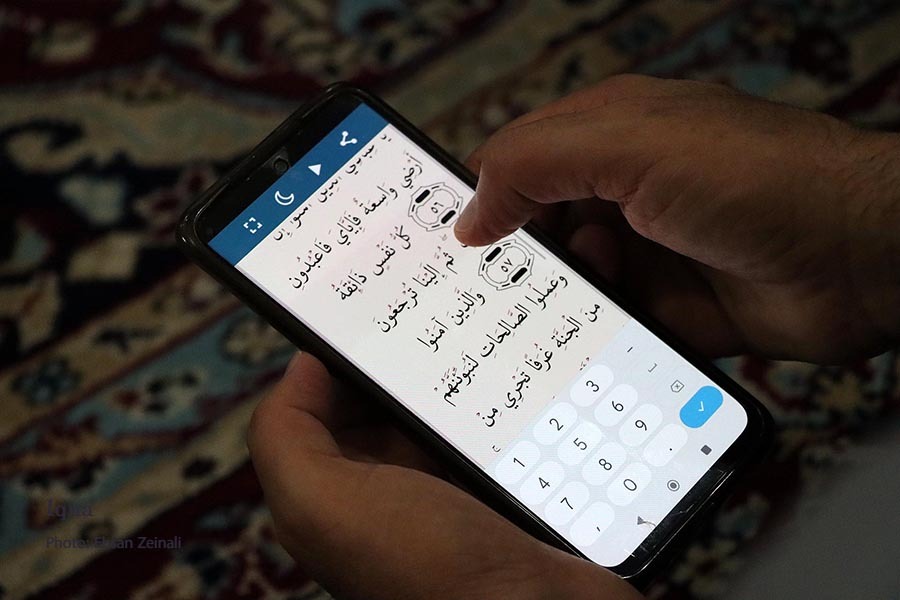 أَرْضِي وَاسِعَةٌ فَإِيَّايَ فَاعْبُدُونِ
٥٦ كُلُّ نَفْسٍ ذَائِقَةُ
ثُمَّ إِلَيْنَا تُرْجَعُونَ
٥٧ وَالَّذِينَ آمَنُوا
وَعَمِلُوا الصَّالِحَاتِ لَنُبَوِّئَنَّهُمْ
مِنَ الْجَنَّةِ غُرَفًا تَجْرِي مِنْ
1 2 3 -
4 5 6
7 8 9
, 0 .
Iqna
Photo: Ehsan Zeinali